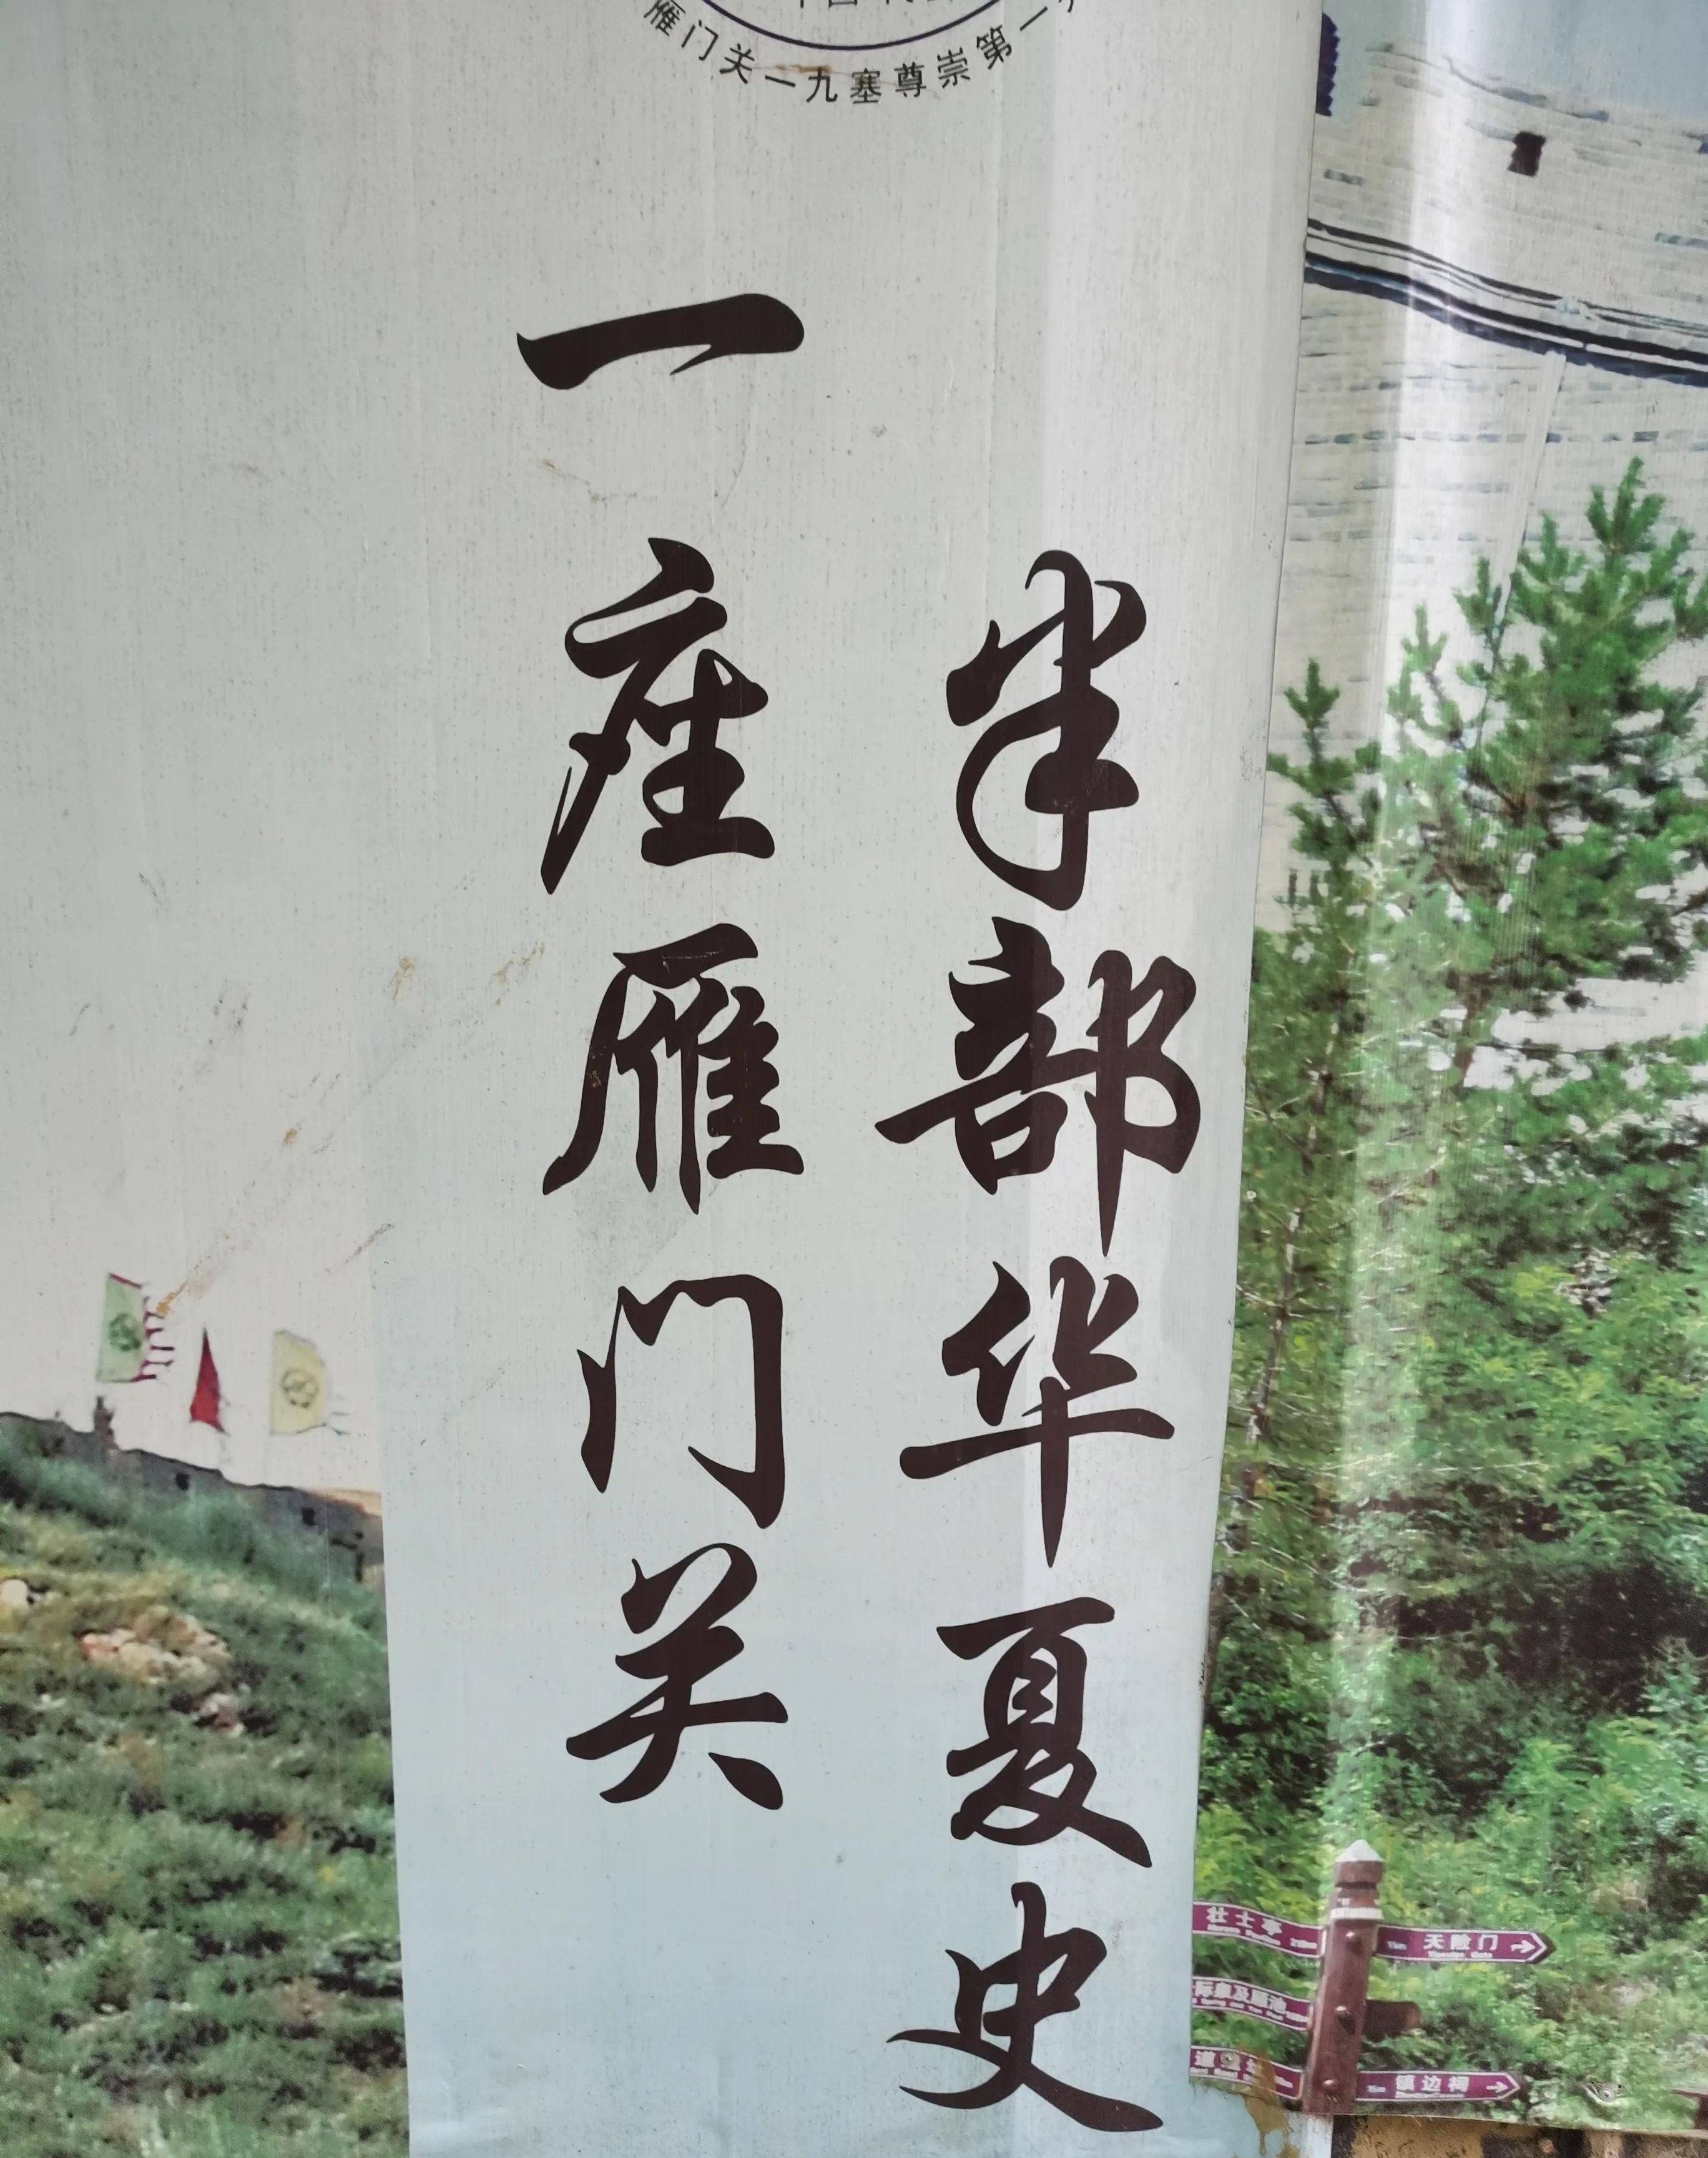 雁门关一九塞尊崇第一
一座雁门关
半部华夏史
壮士亭
天险门
镇边祠